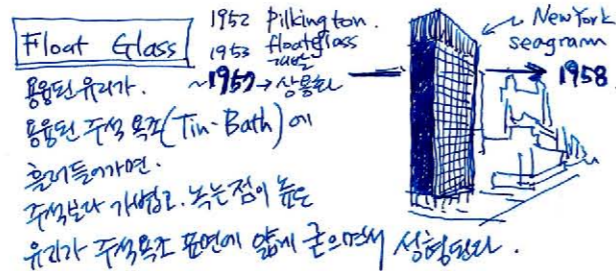 Float Glass
1952 Pilkington.
1953 floatglass
개발
~1957 → 상용화
New York
seagram
1958
용융된 유리가.
용융된 주석 욕조(Tin-Bath)에
흘러들어가면.
주석보다 가볍고. 녹는점이 높은
유리가 주석욕조 표면에 얇게 굳으면서 성형된다.